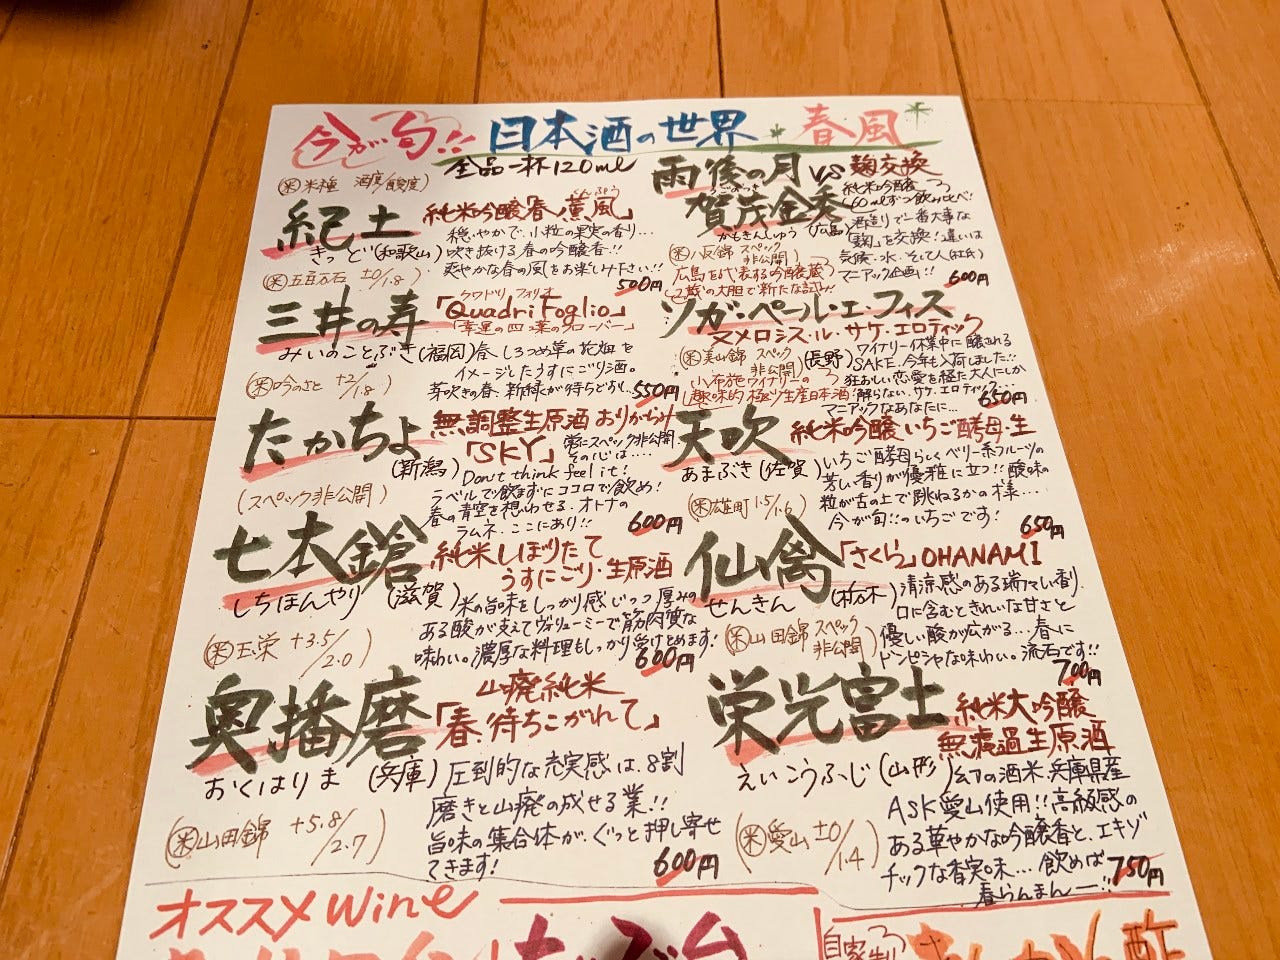 今が旬!! 日本酒の世界 春風
全品一杯120ml
(米米種 酒度/酸度)
紀土 純米吟醸「春ノ薫風」
くんぷう
きっど(和歌山)
穏やかで、小粒の果実の香り…
吹き抜ける春の吟醸香!!
爽やかな春の風をお楽しみ下さい!!
(米五百万石 ±0/1.8)
500円
三井の寿 「Quadrifoglio」
クワドリ フォリオ
「幸運の四ツ葉のクローバー」
みいのことぶき(福岡)
春、しろつめ草の花畑を
イメージしたうすにごり酒。
芽吹きの春、新緑が待ちどおしい…
(米吟のさと +2/1.8)
550円
たかちよ 無調整生原酒 おりがらみ
「SKY」
常にスペック非公開
その心は….
(新潟)
Don't think feel it!
ラベルで飲まずにココロで飲め!
春の青空を想わせる、オトナの
ラムネ、ここにあり!!
(スペック非公開)
600円
七本鎗 純米しぼりたて
うすにごり・生原酒
しちほんやり (滋賀)
米の旨味をしっかり感じつつ厚みの
ある酸が支えてヴォリューミーで筋肉質な
味わい。濃厚な料理もしっかり受けとめます!
(米玉栄 +3.5/2.0)
600円
奥播磨 山廃純米
「春、待ちこがれて」
おくはりま (兵庫)
圧到的な充実感は、8割
磨きと山廃の成せる業!!
旨味の集合体が、ぐっと押し寄せ
てきます!
(米山田錦 +5.8/2.7)
600円
雨後の月 VS 麹交換
うごのつき
賀茂金秀 純米吟醸
60mlずつ飲み比べ!
かもきんしゅう (広島)
酒造りで一番大事な
「麹」を交換!違いは
気候・水・そして人(杜氏)
マニアック企画!!
(米八反錦 スペック非公開)
広島を代表する吟醸蔵
2蔵の大胆で新たな試み!!
600円
ソガ・ペール・エ・フィス
ヌメロシス・ル・サケ・エロティック
(米美山錦 スペック非公開)
(長野)
ワイナリー休業中に醸される
SAKE、今年も入荷しました!!
狂おしい恋愛を経た大人にしか
解らない、サケ・エロティック…
マニアックなあなたに…
小布施ワイナリーの
趣味的極少生産日本酒
650円
天吹 純米吟醸 いちご酵母・生
あまぶき(佐賀)
いちご酵母らしくベリー系フルーツの
芳い香りが優雅に立つ!!酸味の
粒が舌の上で跳ねるかの様…
今が旬!!のいちごです!
(米雄町 1.5/1.6)
650円
仙禽 「さくら」OHANAMI
せんきん (栃木)
清涼感のある瑞々しい香り、
口に含むときれいな甘さと
優しい酸が広がる…春に
ドンピシャな味わい。流石です!!
(米山田錦 スペック非公開)
700円
栄光冨士 純米大吟醸
無濾過生原酒
えいこうふじ(山形)
幻の酒米、兵庫県産
ASK愛山使用!!高級感の
ある華やかな吟醸香と、エキゾ
チックな香実味… 飲めば
春らんまんー!!
(米愛山 ±0/1.4)
750円
オススメ wine
自家製